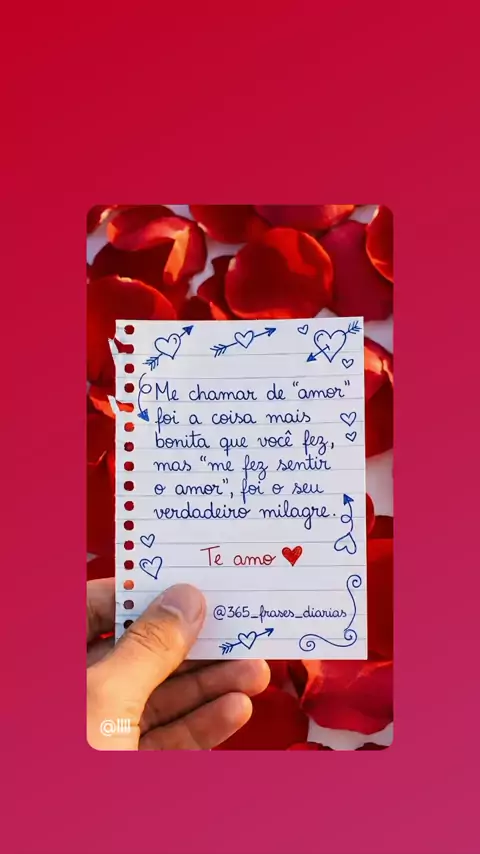 Me chamar de "amor"
foi a coisa mais
bonita que você fez,
mas "me fez sentir
o amor", foi o seu
verdadeiro milagre.
Te amo
@365_frases_diarias
@llll